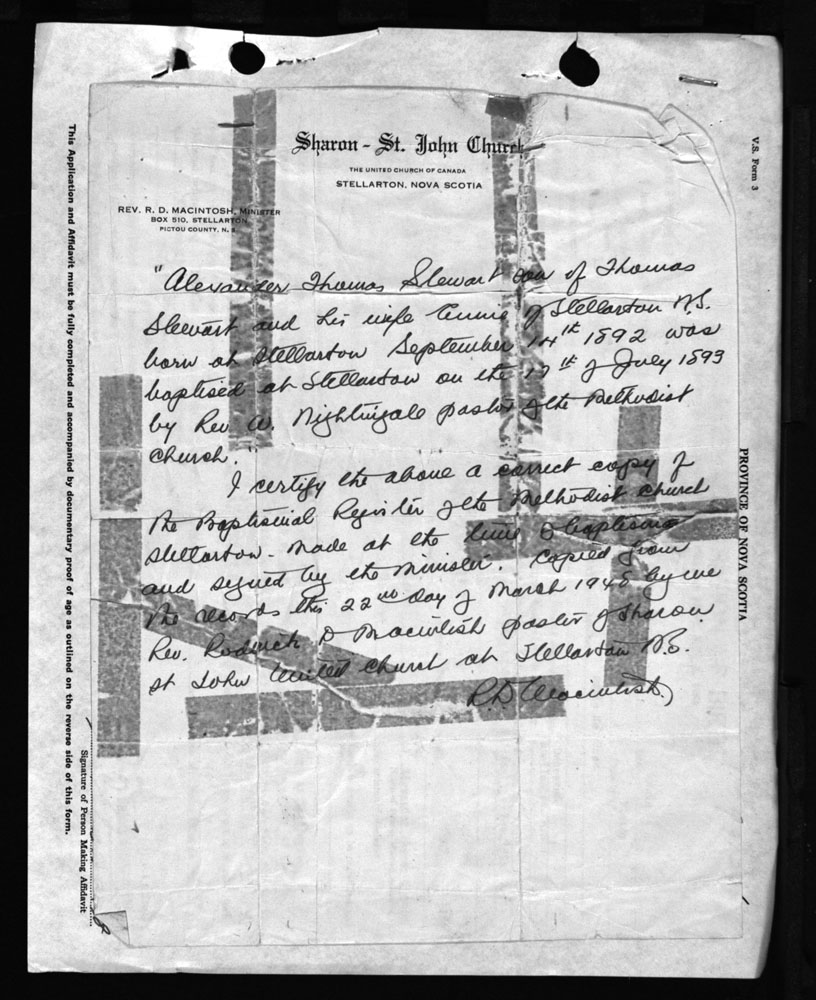 Sharon - St. John Church
THE UNITED CHURCH OF CANADA
STELLARTON, NOVA SCOTIA
REV. R. D. MACINTOSH, MINISTER
BOX 510, STELLARTON
PICTOU COUNTY, N. S.
"Alexander Thomas Stewart son of Thomas
Stewart and his wife of Stellarton N.S.
born at Stellarton September 14th 1892 was
baptised at Stellarton on the 17th of July 1893
by Rev. W. Nightingale pastor of the Methodist
Church."
I certify the above a correct copy of
the Baptismal Register of the Methodist Church
Stellarton - made at the time of baptism
and signed by the Minister. Copied from
the records this 22nd day of March 1948 by me
Rev. Roderick D Macintosh pastor of Sharon
St John United Church at Stellarton N.S.
R D Macintosh
V.S. Form 3
PROVINCE OF NOVA SCOTIA
This Application and Affidavit must be fully completed and accompanied by documentary proof of age as outlined on the reverse side of this form.
Signature of Person Making Affidavit